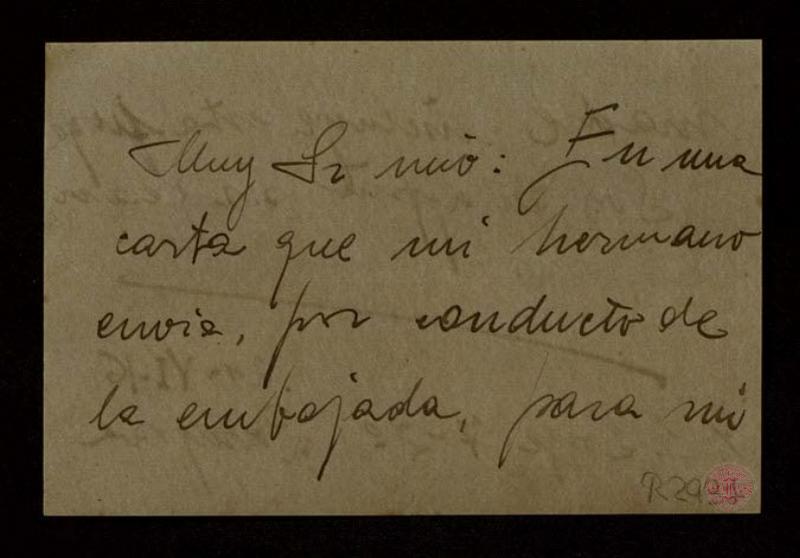 Muy Sr mio: En una
carta que mi hermano
envia, por conducto de
la embajada, para mi